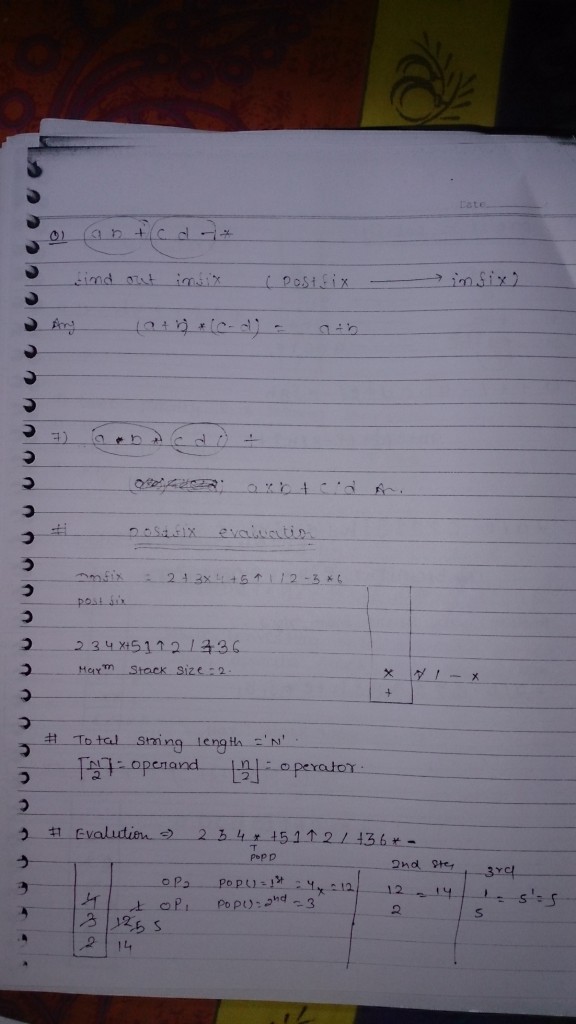 Date
Q) a b + c d - *
find out infix ( postfix → infix)
Ans (a+b) * (c-d) = a÷b
7) a • b * c d / ÷
a×b + c/d An.
# postfix evaluation
infix = 2+3×4+5↑1/2-3*6
post fix
2 3 4 ×+ 5 1 ↑ 2 / + 3 6
Maxm Stack size = 2.
× ↑ / - ×
+
# Total string length = 'N'.
⌈N/2⌉ = operand ⌊n/2⌋ = operator.
# Evalution ⇒ 2 3 4 * + 5 1 ↑ 2 / + 3 6 * -
↑
POPD
2nd Step 3rd
OP2 POP() = 1st = 4 × = 12 12 = 14 1 = 5¹ = 5
4 1 OP1 POP() = 2nd = 3 2 5
3 12 5 5
2 14